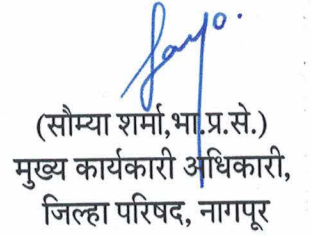 (सौम्या शर्मा,भा.प्र.से.)
मुख्य कार्यकारी अधिकारी,
जिल्हा परिषद, नागपूर